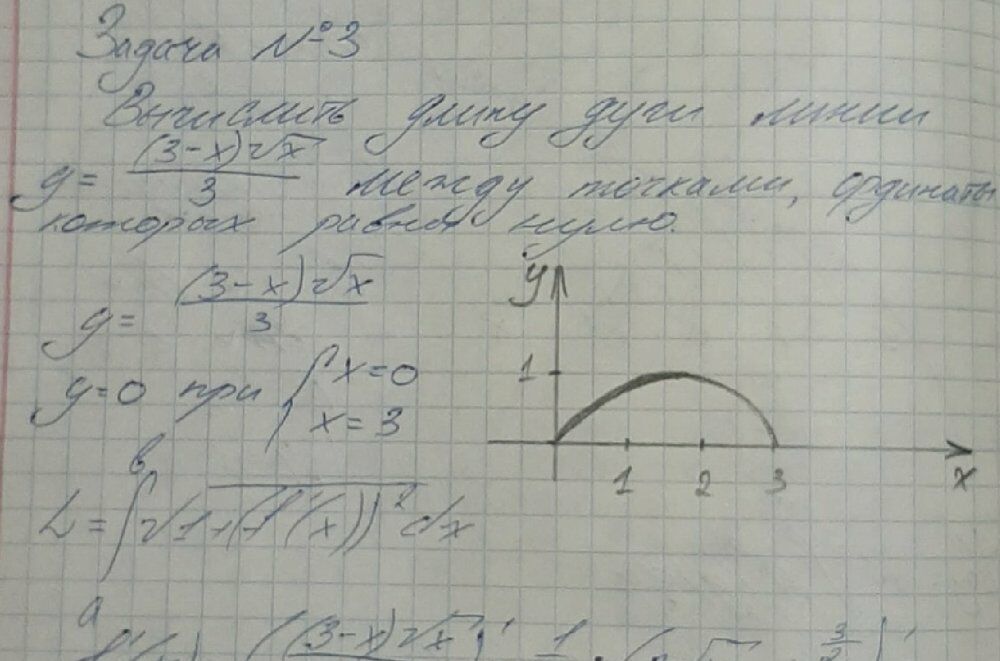 Задача №3
Вычислить длину дуги линии
y = (3-x)√x / 3 между точками, ординаты
которых равны нулю.
y = (3-x)√x / 3
y=0 при { x=0
x=3
L = ∫ₐᵇ √1+(f'(x))² dx
y
1
1 2 3 x
((3-x)√x